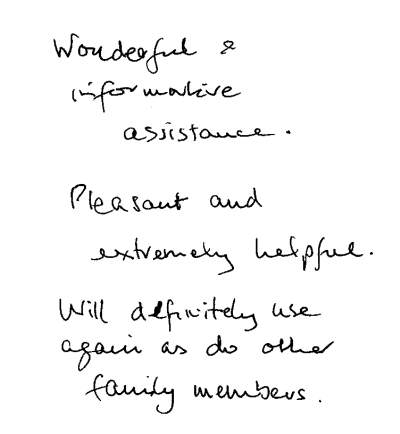 Wonderful &
informative
assistance.
Pleasant and
extremely helpful.
Will definitely use
again as do other
family members.